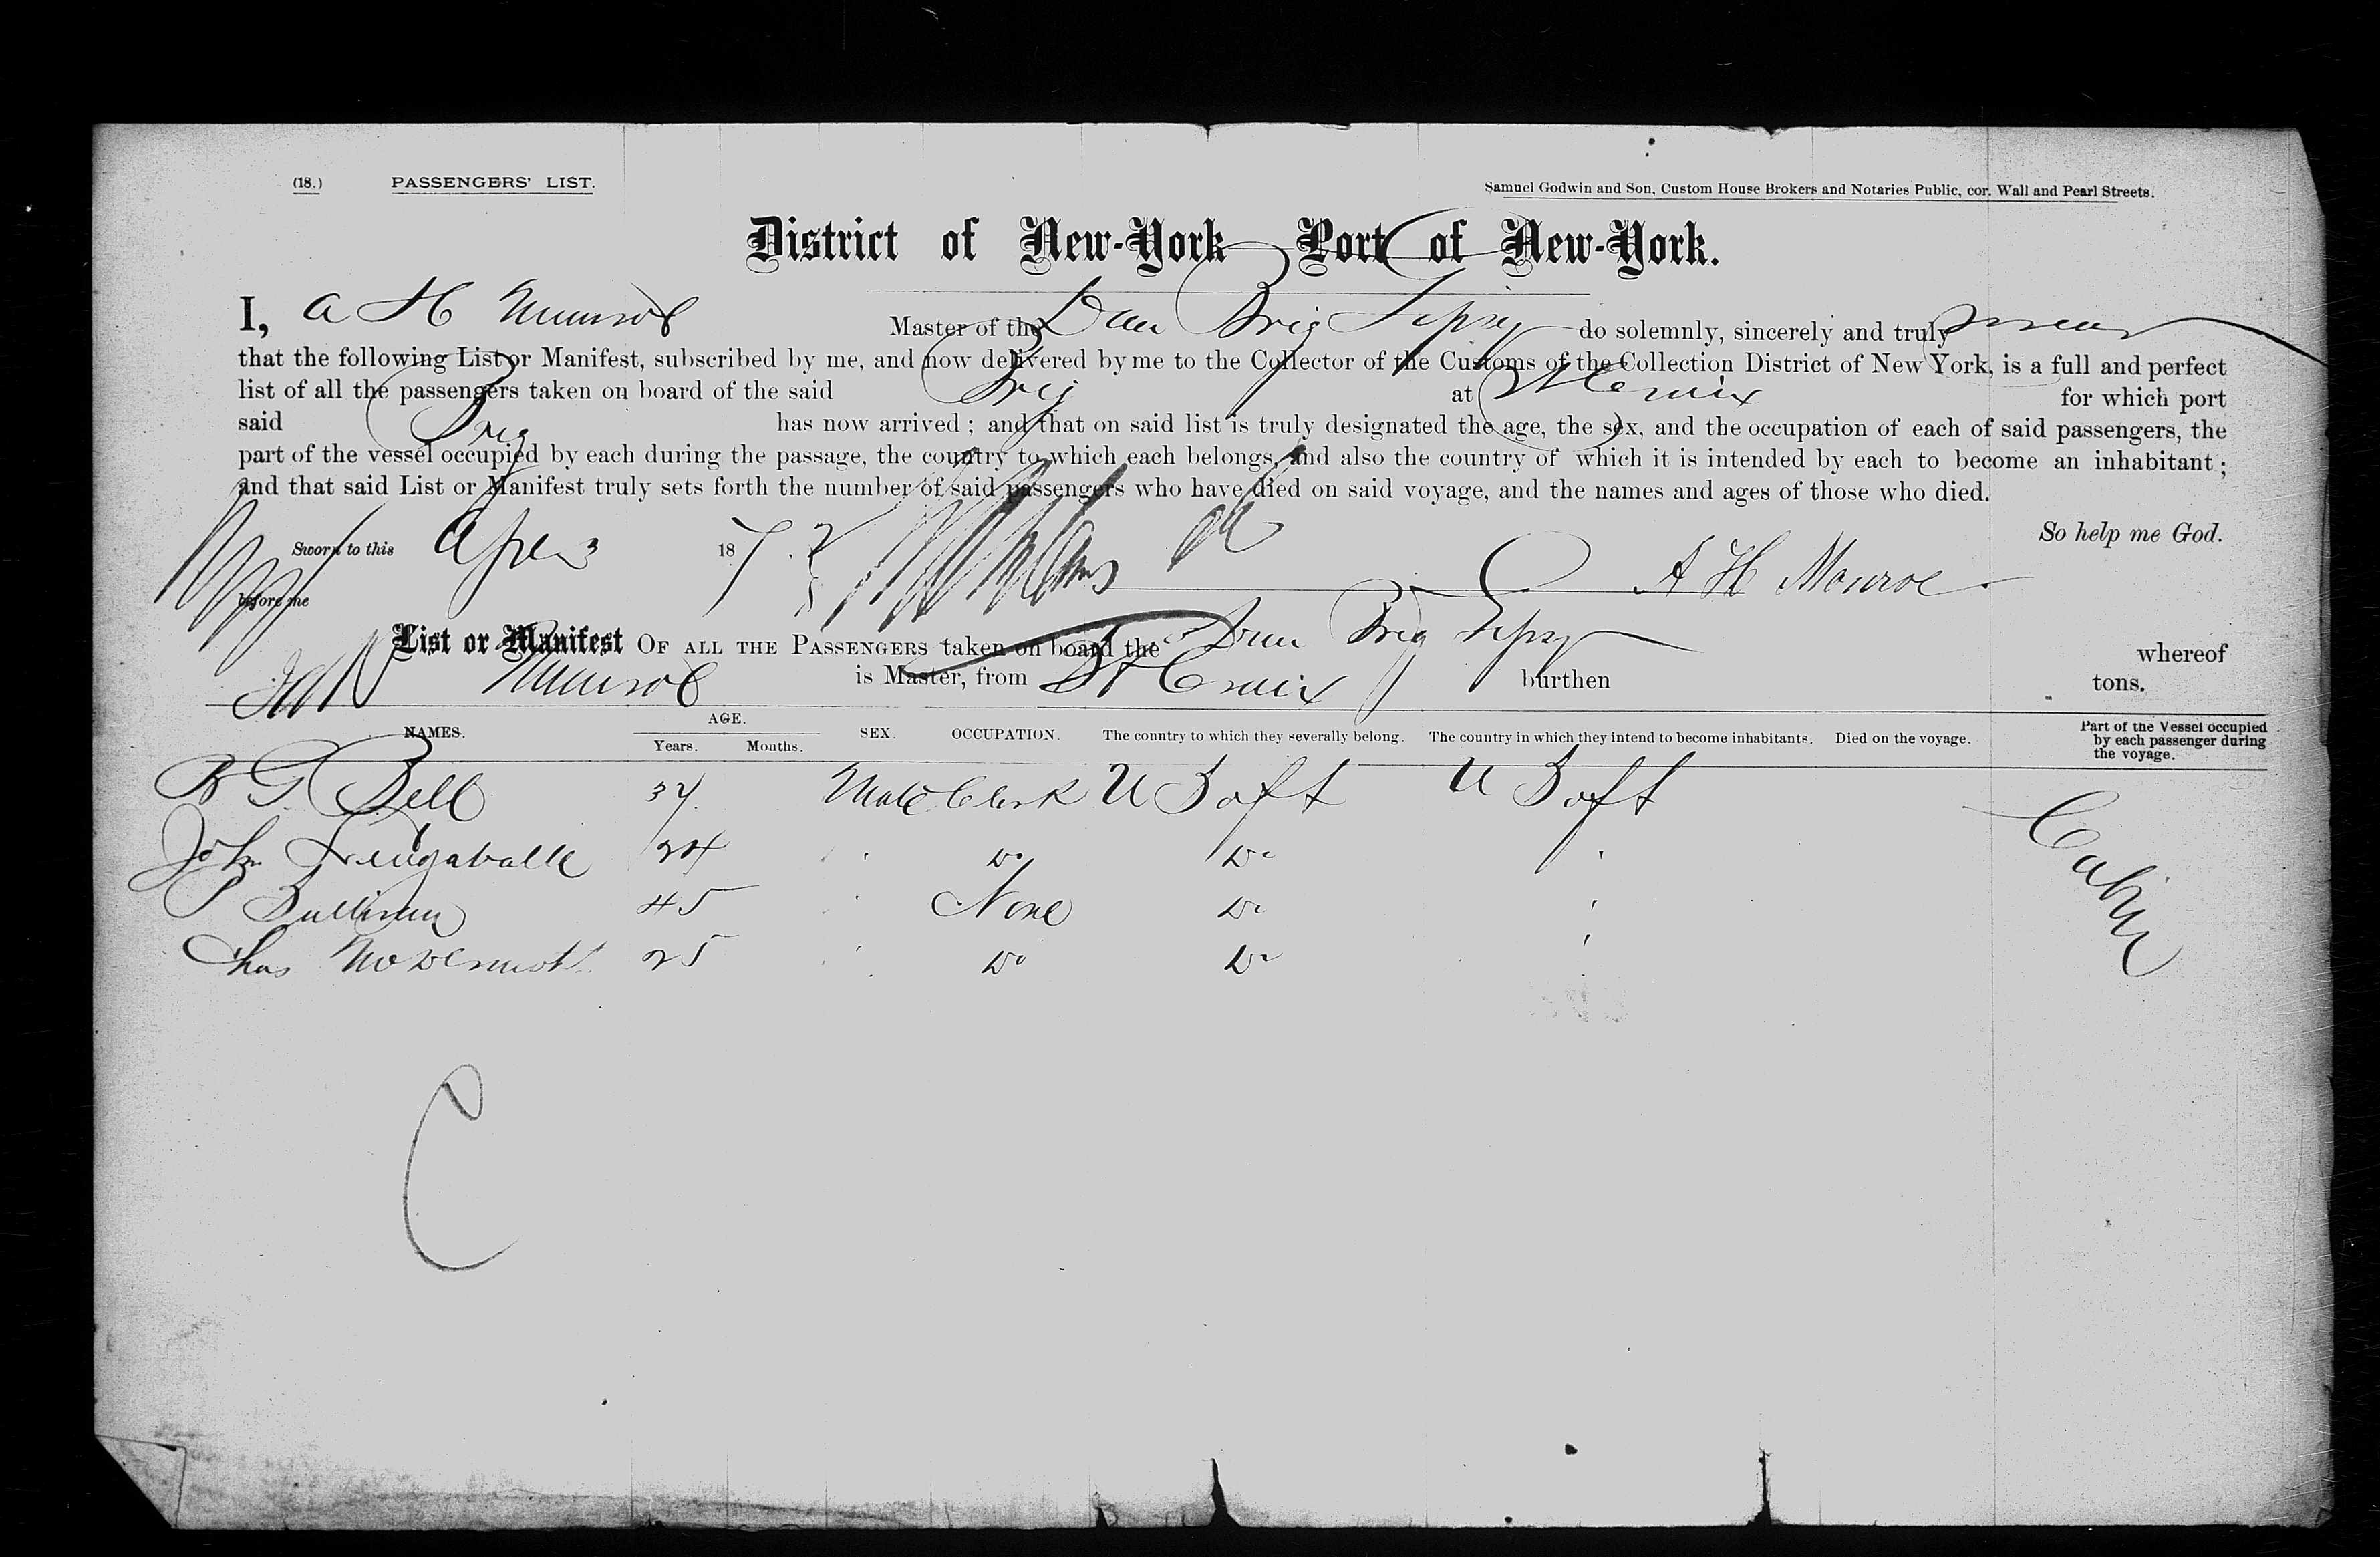 (18.) PASSENGERS' LIST. Samuel Godwin and Son, Custom House Brokers and Notaries Public, cor. Wall and Pearl Streets.
District of New-York Port of New-York.
I, A H Munroe Master of the Dan Brig Gipsy do solemnly, sincerely and truly swear
that the following List or Manifest, subscribed by me, and now delivered by me to the Collector of the Customs of the Collection District of New York, is a full and perfect
list of all the passengers taken on board of the said Brig at St Croix for which port
said Brig has now arrived; and that on said list is truly designated the age, the sex, and the occupation of each of said passengers, the
part of the vessel occupied by each during the passage, the country to which each belongs, and also the country of which it is intended by each to become an inhabitant;
and that said List or Manifest truly sets forth the number of said passengers who have died on said voyage, and the names and ages of those who died.
So help me God.
Sworn to this Apr 3 187
before me A H Monroe
List or Manifest OF ALL THE PASSENGERS taken on board the Dan Brig Gipsy whereof
Munroe is Master, from St Croix burthen tons.
NAMES. AGE. Years. Months. SEX. OCCUPATION. The country to which they severally belong. The country in which they intend to become inhabitants. Died on the voyage. Part of the Vessel occupied by each passenger during the voyage.
B G Bell 37 Male Clerk U S of A U S of A Cabin
John 24 " Do Do "
P Sullivan 45 " None Do "
Chas McDermott 25 " Do Do "
C